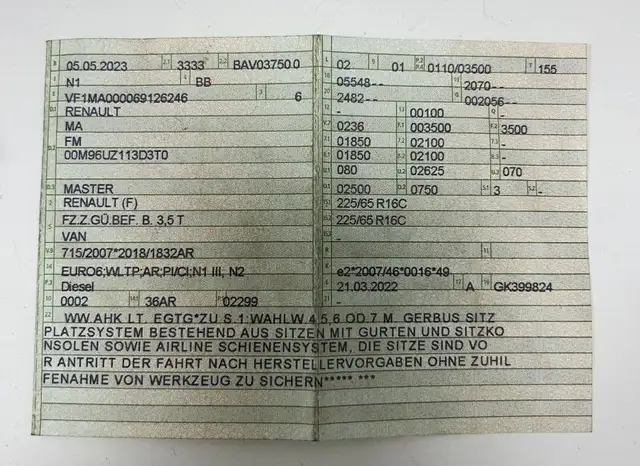 B 05.05.2023 2.1 3333 2.2 BAV03750 0
J N1 4 BB
E VF1MA000069126246 3 6
D.1 RENAULT
MA
D.2 FM
00M96UZ113D3T0
D.3 MASTER
2 RENAULT (F)
5 FZ.Z.GÜ.BEF. B. 3,5 T
VAN
V.9 715/2007*2018/1832AR
14 EURO6;WLTP;AR;PI/CI;N1 III, N2
P.3 Diesel
10 0002 14.1 36AR P.1 02299
L 02 9 01 P.2 P.4 0110/03500 T 155
18 05548-- 19 2070--
20 2482-- G 002056--
12 - 13 00100 Q -
V.7 0236 F.1 003500 F.2 3500
7.1 01850 7.2 02100 7.3 -
8.1 01850 8.2 02100 8.3 -
U.1 080 U.2 02625 U.3 070
O.1 02500 O.2 0750 S.1 3 S.2 -
15.1 225/65 R16C
15.2 225/65 R16C
15.3 -
R 11
K e2*2007/46*0016*49
6 21.03.2022 17 A 16 GK399824
21 -
22 WW.AHK LT. EGTG*ZU S.1:WAHLW.4,5,6 OD.7 M. GERBUS SITZ
PLATZSYSTEM BESTEHEND AUS SITZEN MIT GURTEN UND SITZKO
NSOLEN SOWIE AIRLINE SCHIENENSYSTEM, DIE SITZE SIND VO
R ANTRITT DER FAHRT NACH HERSTELLERVORGABEN OHNE ZUHIL
FENAHME VON WERKZEUG ZU SICHERN***** ***